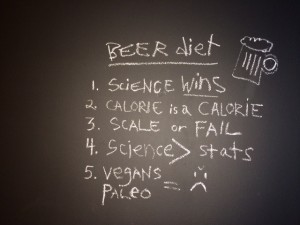 BEER diet
1. SCIENCE WINS
2. CALORIE is a CALORIE
3. SCALE or FAIL
4. Science > stats
5. VEGANS
PALEO = :(